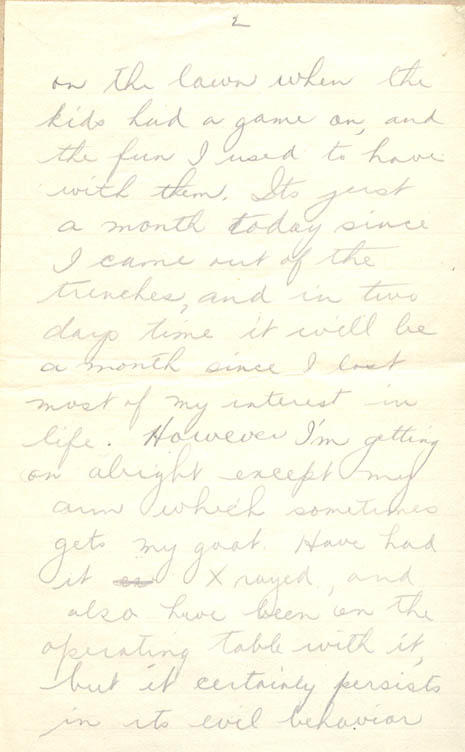 2
on the lawn when the
kids had a game on, and
the fun I used to have
with them. Its just
a month today since
I came out of the
trenches, and in two
days time it will be
a month since I lost
most of my interest in
life. However I'm getting
on alright except my
arm which sometimes
gets my goat. Have had
it X rayed, and
also have been on the
operating table with it,
but it certainly persists
in its evil behavior